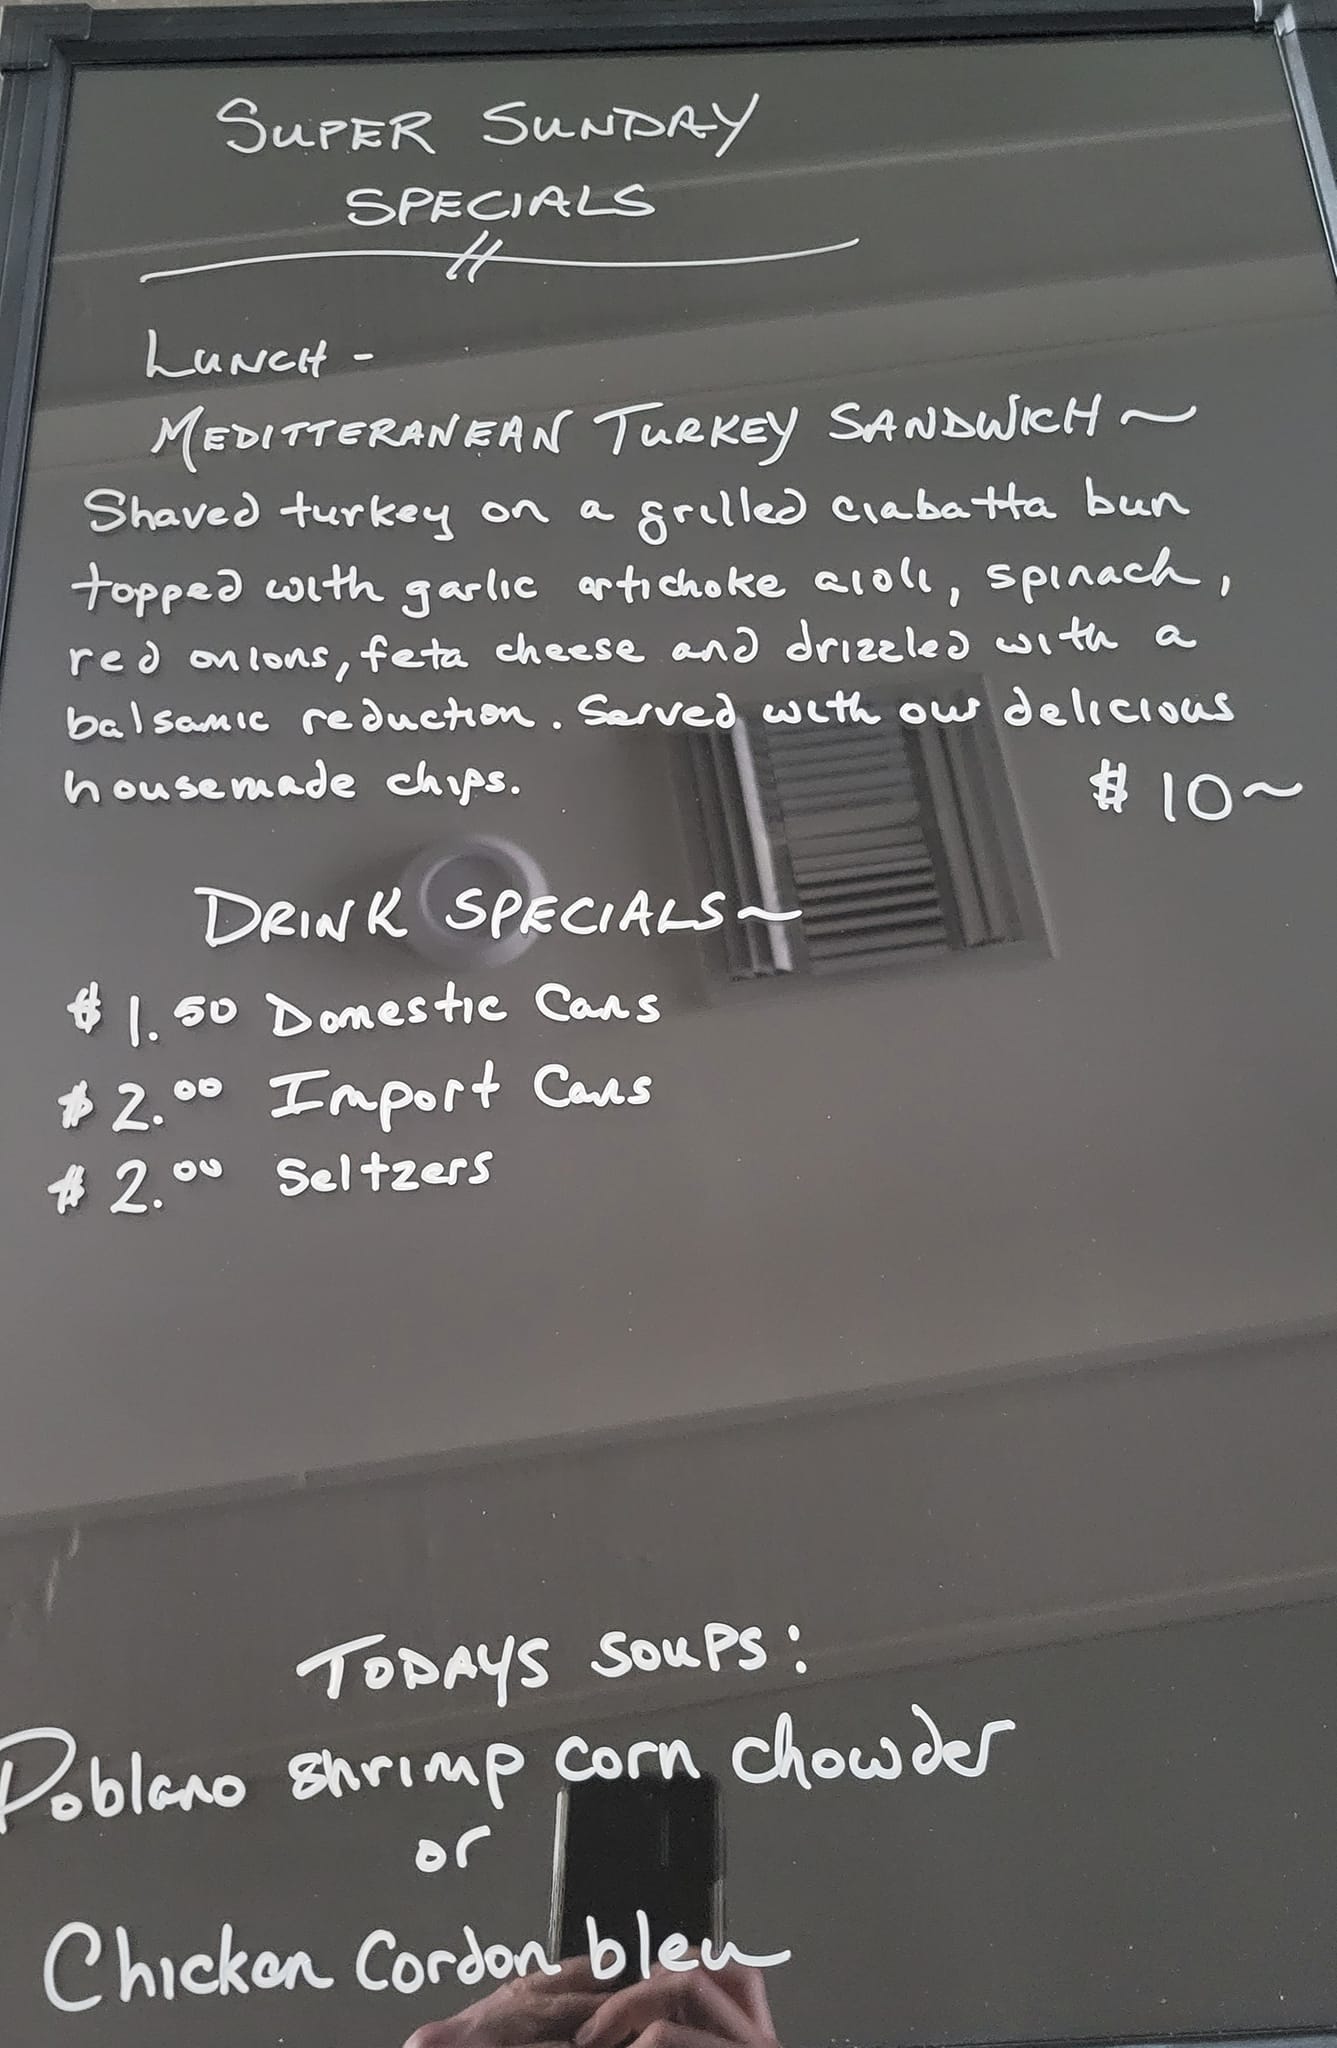 SUPER SUNDAY
SPECIALS
LUNCH -
MEDITTERANEAN TURKEY SANDWICH ~
Shaved turkey on a grilled ciabatta bun
topped with garlic artichoke aioli, spinach,
red onions, feta cheese and drizzled with a
balsamic reduction. Served with our delicious
housemade chips. $10~
DRINK SPECIALS~
$1.50 Domestic Cans
$2.00 Import Cans
$2.00 Seltzers
TODAYS SOUPS:
Poblano shrimp corn chowder
or
Chicken Cordon bleu